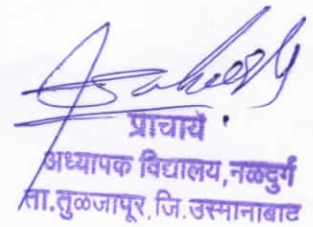 प्राचार्य
अध्यापक विद्यालय, नळदुर्ग
ता. तुळजापूर, जि. उस्मानाबाद